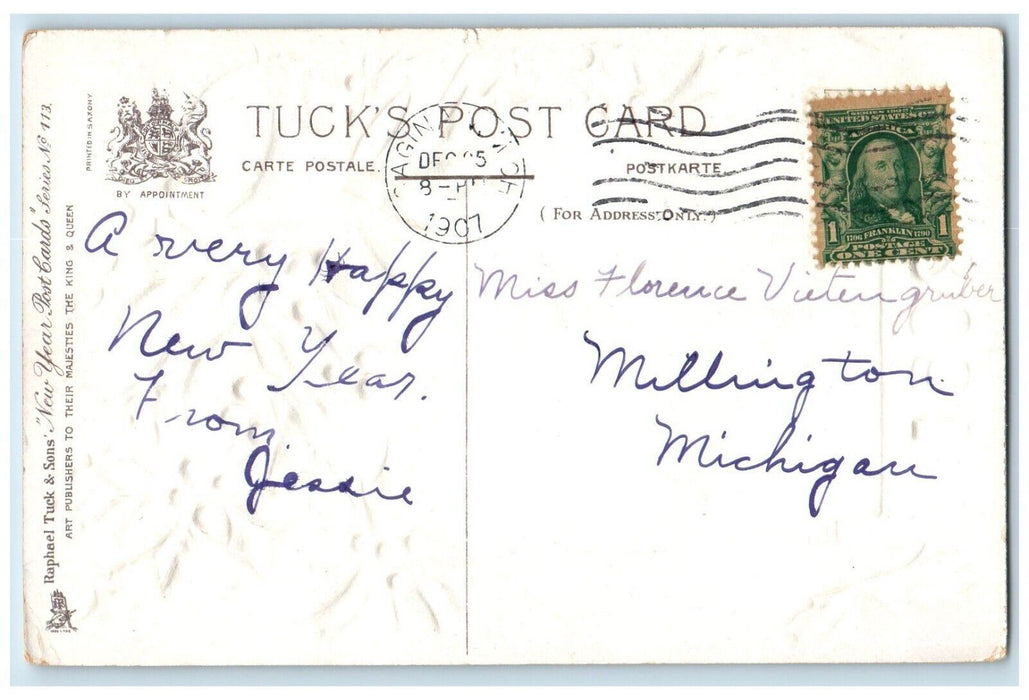 TUCK'S POST CARD
CARTE POSTALE.
POSTKARTE
( FOR ADDRESS ONLY. )
BY APPOINTMENT
PRINTED IN SAXONY
Raphael Tuck & Sons' "New Year Post Cards" Series No 113.
ART PUBLISHERS TO THEIR MAJESTIES THE KING & QUEEN
MICH
8-P
1907
UNITED STATES OF
AMERICA
1 1
1706 FRANKLIN 1790
POSTAGE
ONE CENT
A very Happy
New Year.
From
Jessie
Miss Florence Vietengruber
Millington
Michigan